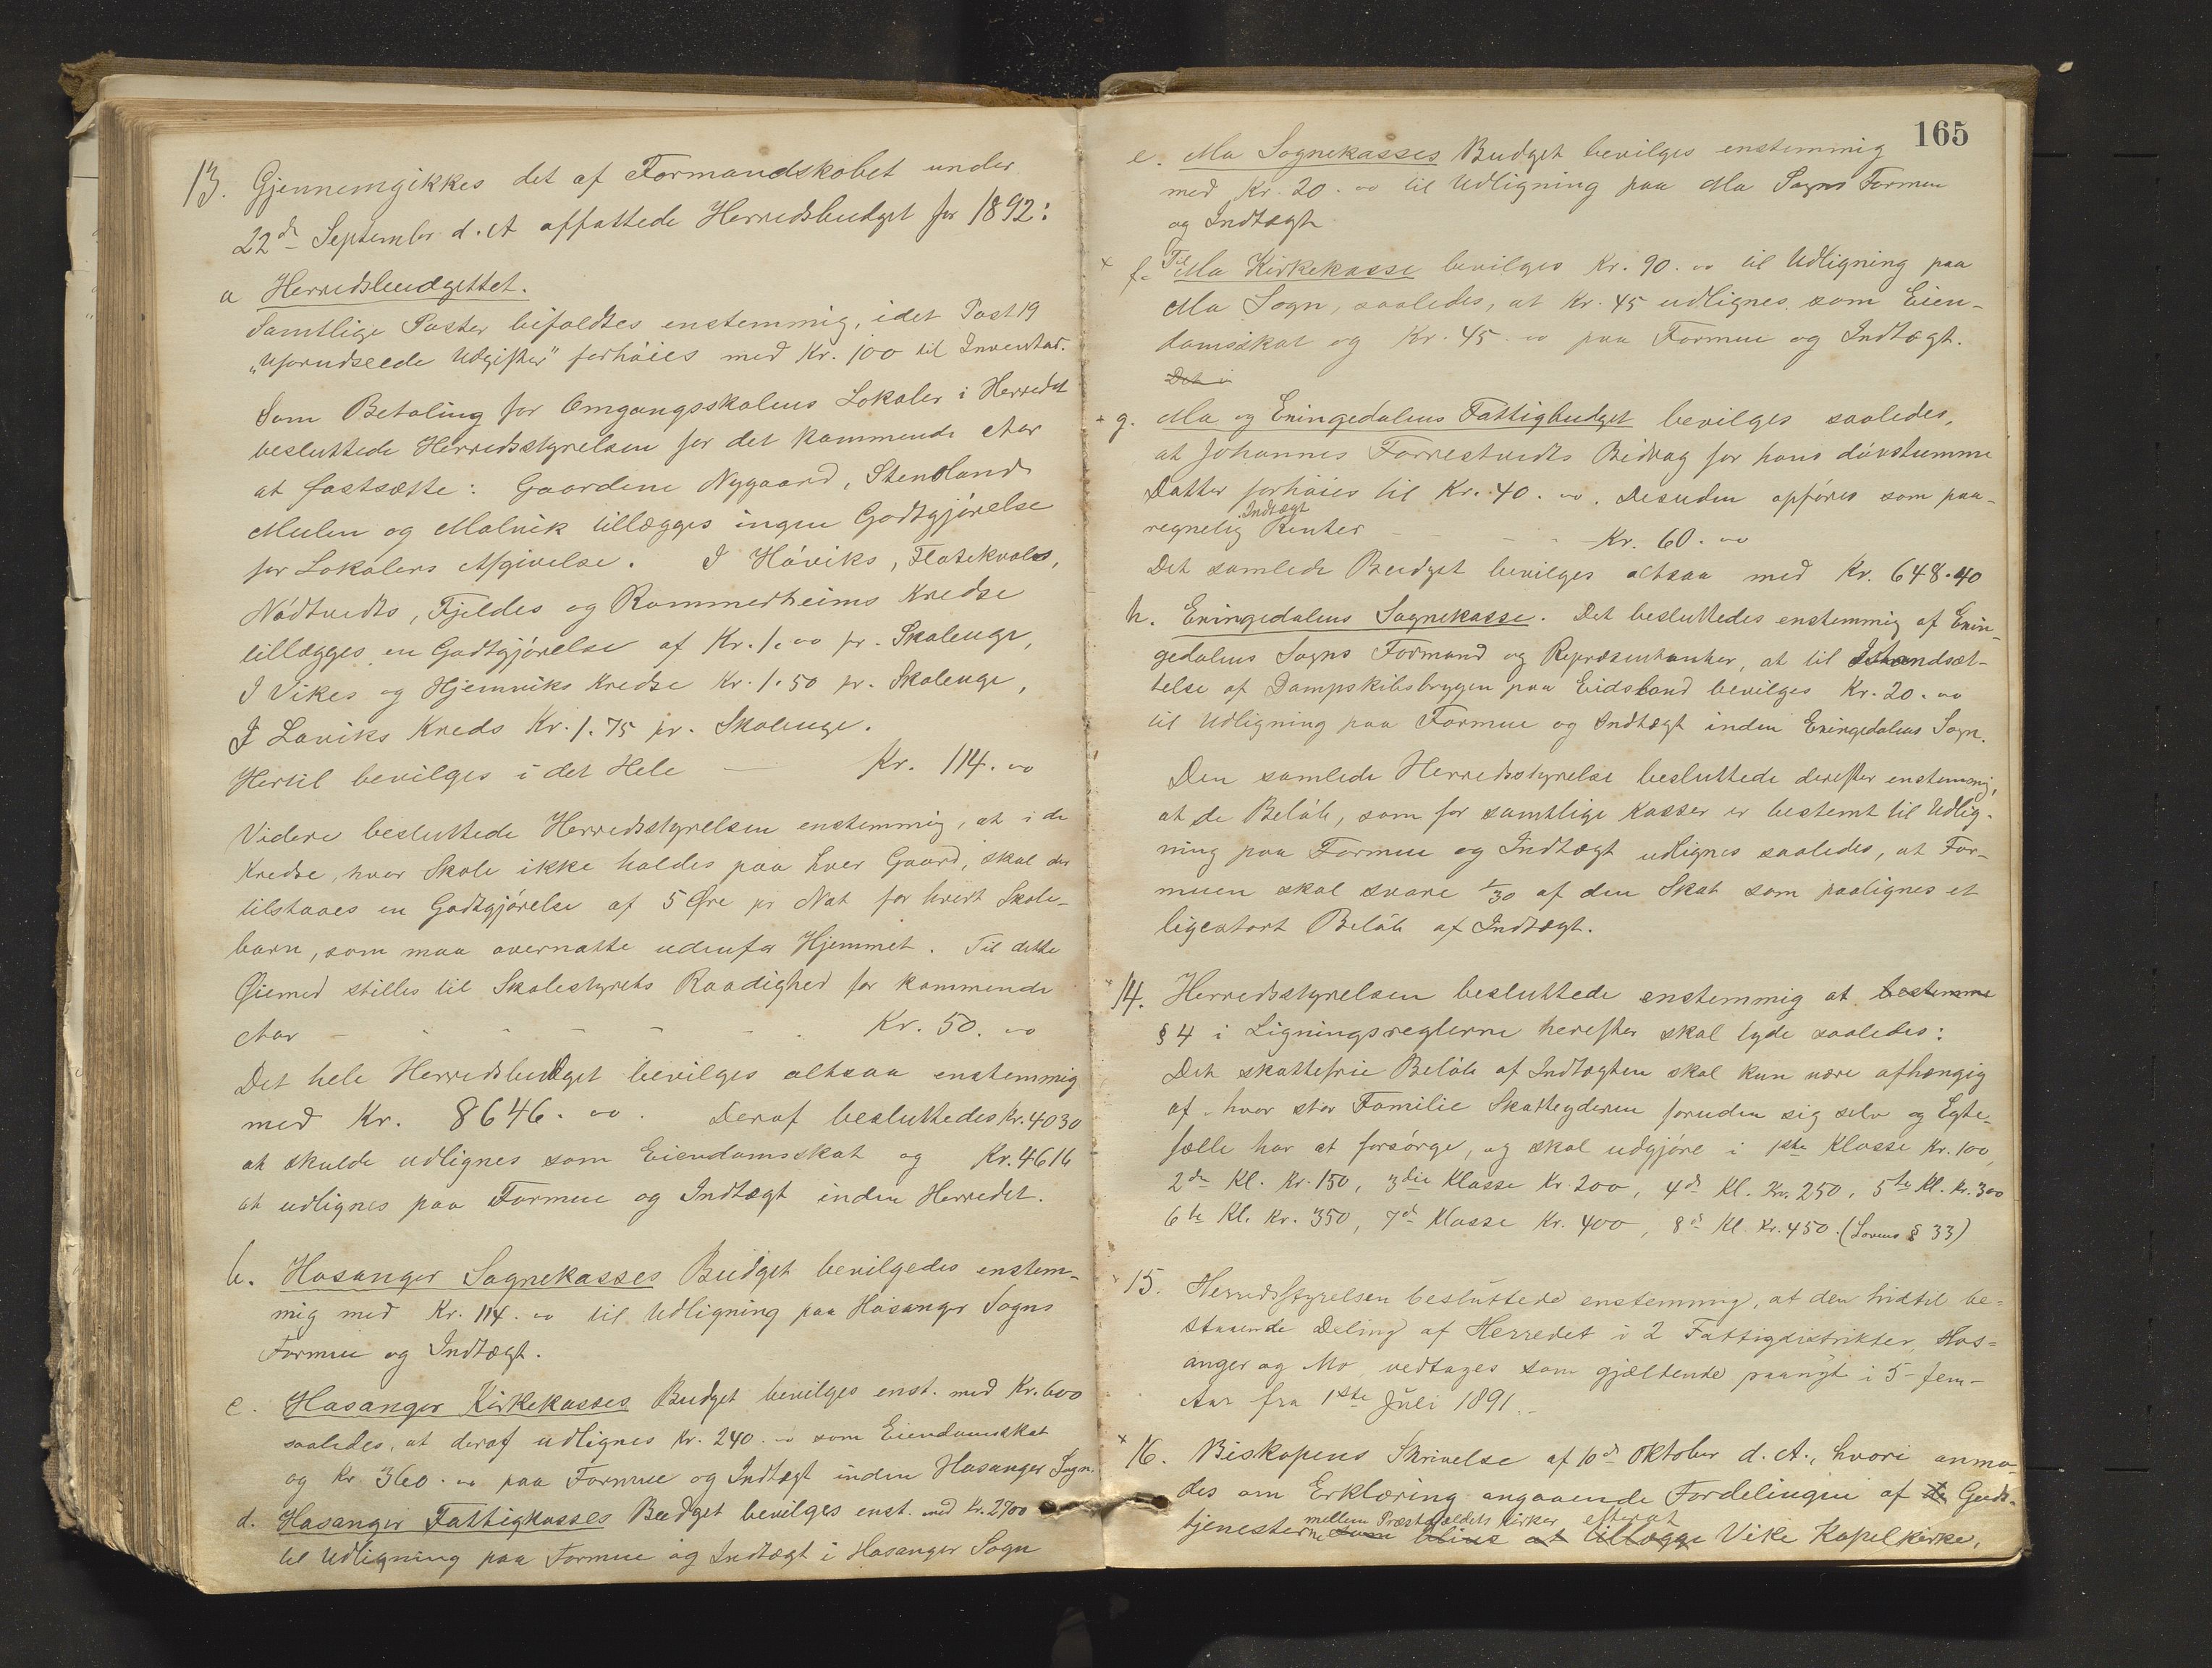 13. Gjennemgikkes det af Formandskabet under
22de September d. A affattede Herredsbudget for 1892:
a Herredsbudgettet.
Samtlige Poster bifaldtes enstemmig, idet Post 19
"uforudseede Udgifter" forhøies med Kr. 100 til Inventar.
Som Betaling for Omgangsskolens Lokaler i Herredet
besluttede Herredsstyrelsen for det kommende Aar
at fastsætte: Gaardene Nygaard, Stensland
Mulen og Malvik tillægges ingen Godtgjørelse
for Lokalers Afgivelse. I Håviks, Flatekvals,
Nødtvedts, Fjeldes og Rommerheims Kredse
tillægges en Godtgjørelse af Kr. 1.00 pr. Skoleuge,
I Vikes og Hjemviks Kredse Kr. 1.50 pr. Skoleuge,
I Laviks Kreds Kr. 1.75 pr. Skoleuge.
Hertil bevilges i det Hele — Kr. 114.00
Videre besluttede Herredsstyrelsen enstemmig, at i de
Kredse, hvor Skole ikke holdes paa hver Gaard, skal der
tilstaaes en Godtgjørelse af 5 Øre pr Nat for hvert Skole-
barn, som maa overnatte udenfor Hjemmet. Til dette
Øiemed stilles til Skolestyrets Raadighed for kommende
Aar - - - - - Kr. 50.00
Det hele Herredsbudget bevilges altsaa enstemmig
med Kr. 8646.00. Deraf besluttedes Kr. 4030
at skulde udlignes som Eiendomsskat og Kr. 4616
at udlignes paa Formue og Indtægt inden Herredet.
b. Hosanger Sognekasses Budget bevilgedes enstem-
mig med Kr. 114.00 til Udligning paa Hosanger Sogns
Formue og Indtægt.
c. Hosanger Kirkekasses Budget bevilges enst. med Kr. 600
saaledes, at deraf udlignes Kr. 240.00 som Eiendomsskat
og Kr. 360.00 paa Formue og Indtægt inden Hosanger Sogn.
d. Hosanger Fattigkasses Budget bevilges enst. med Kr. 2700
til Udligning paa Formue og Indtægt i Hosanger Sogn
165
e. Mo Sognekasses Budget bevilges enstemmig
med Kr. 20.00 til Udligning paa Mo Sogns Formue
og Indtægt
x f. Til Mo Kirkekasse bevilges Kr. 90.00 til Udligning paa
Mo Sogn, saaledes, at Kr. 45 udlignes som Eien-
domsskat og Kr. 45.00 paa Formue og Indtægt.
Det i
g. Mo og Eningedalens Fattigbudget bevilges saaledes,
at Johannes Forrestvedts Bidrag for hans døvstumme
Datter forhøies til Kr. 40.00. Desuden opføres som paa-
regnelig Indtægt Renter - - - Kr. 60.00
Det samlede Budget bevilges altsaa med Kr. 648.40
h. Eningedalens Sognekasse. Det besluttedes enstemmig af Enin-
gedalens Sogns Formand og Repræsentanter, at til Istandsæt-
telse af Dampskibsbryggen paa Eidsland bevilges Kr. 20.00
til Udligning paa Formue og Indtægt inden Eningedalens Sogn.
Den samlede Herredsstyrelse besluttede derefter enstemmig,
at de Beløb, som for samtlige Kasser er bestemt til Udlig-
ning paa Formue og Indtægt udlignes saaledes, at For-
muen skal svare 1/30 af den Skat som paalignes et
ligestort Beløb af Indtægt.
x 14. Herredsstyrelsen besluttede enstemmig at bestemme
§ 4 i Ligningsreglerne herefter skal lyde saaledes:
Det skattefrie Beløb af Indtægten skal kun være afhængig
af hvor stor Familie Skatteyderen foruden sig selv og Egte-
fælle har at forsørge, og skal udgjøre i 1ste Klasse Kr. 100,
2den Kl. Kr. 150, 3die Klasse Kr. 200, 4de Kl. Kr. 250, 5te Kl. Kr. 300
6te Kl. Kr. 350, 7de Klasse Kr. 400, 8de Kl. Kr. 450. (Lovens § 33)
x 15. Herredsstyrelsen besluttede enstemmig, at den hidtil be-
staaende Deling af Herredet i 2 Fattigdistrikter, Hos-
anger og Mo vedtages som gjældende paanyt i 5 - fem -
Aar fra 1ste Juli 1891.
x 16. Biskopens Skrivelse af 10de Oktober d. A., hvori anmo-
des om Erklæring angaaende Fordelingen af de Guds-
mellem Præstegjældets Kirker efterat
tjenesterne som blive at tillægge Vike Kapelkirke,